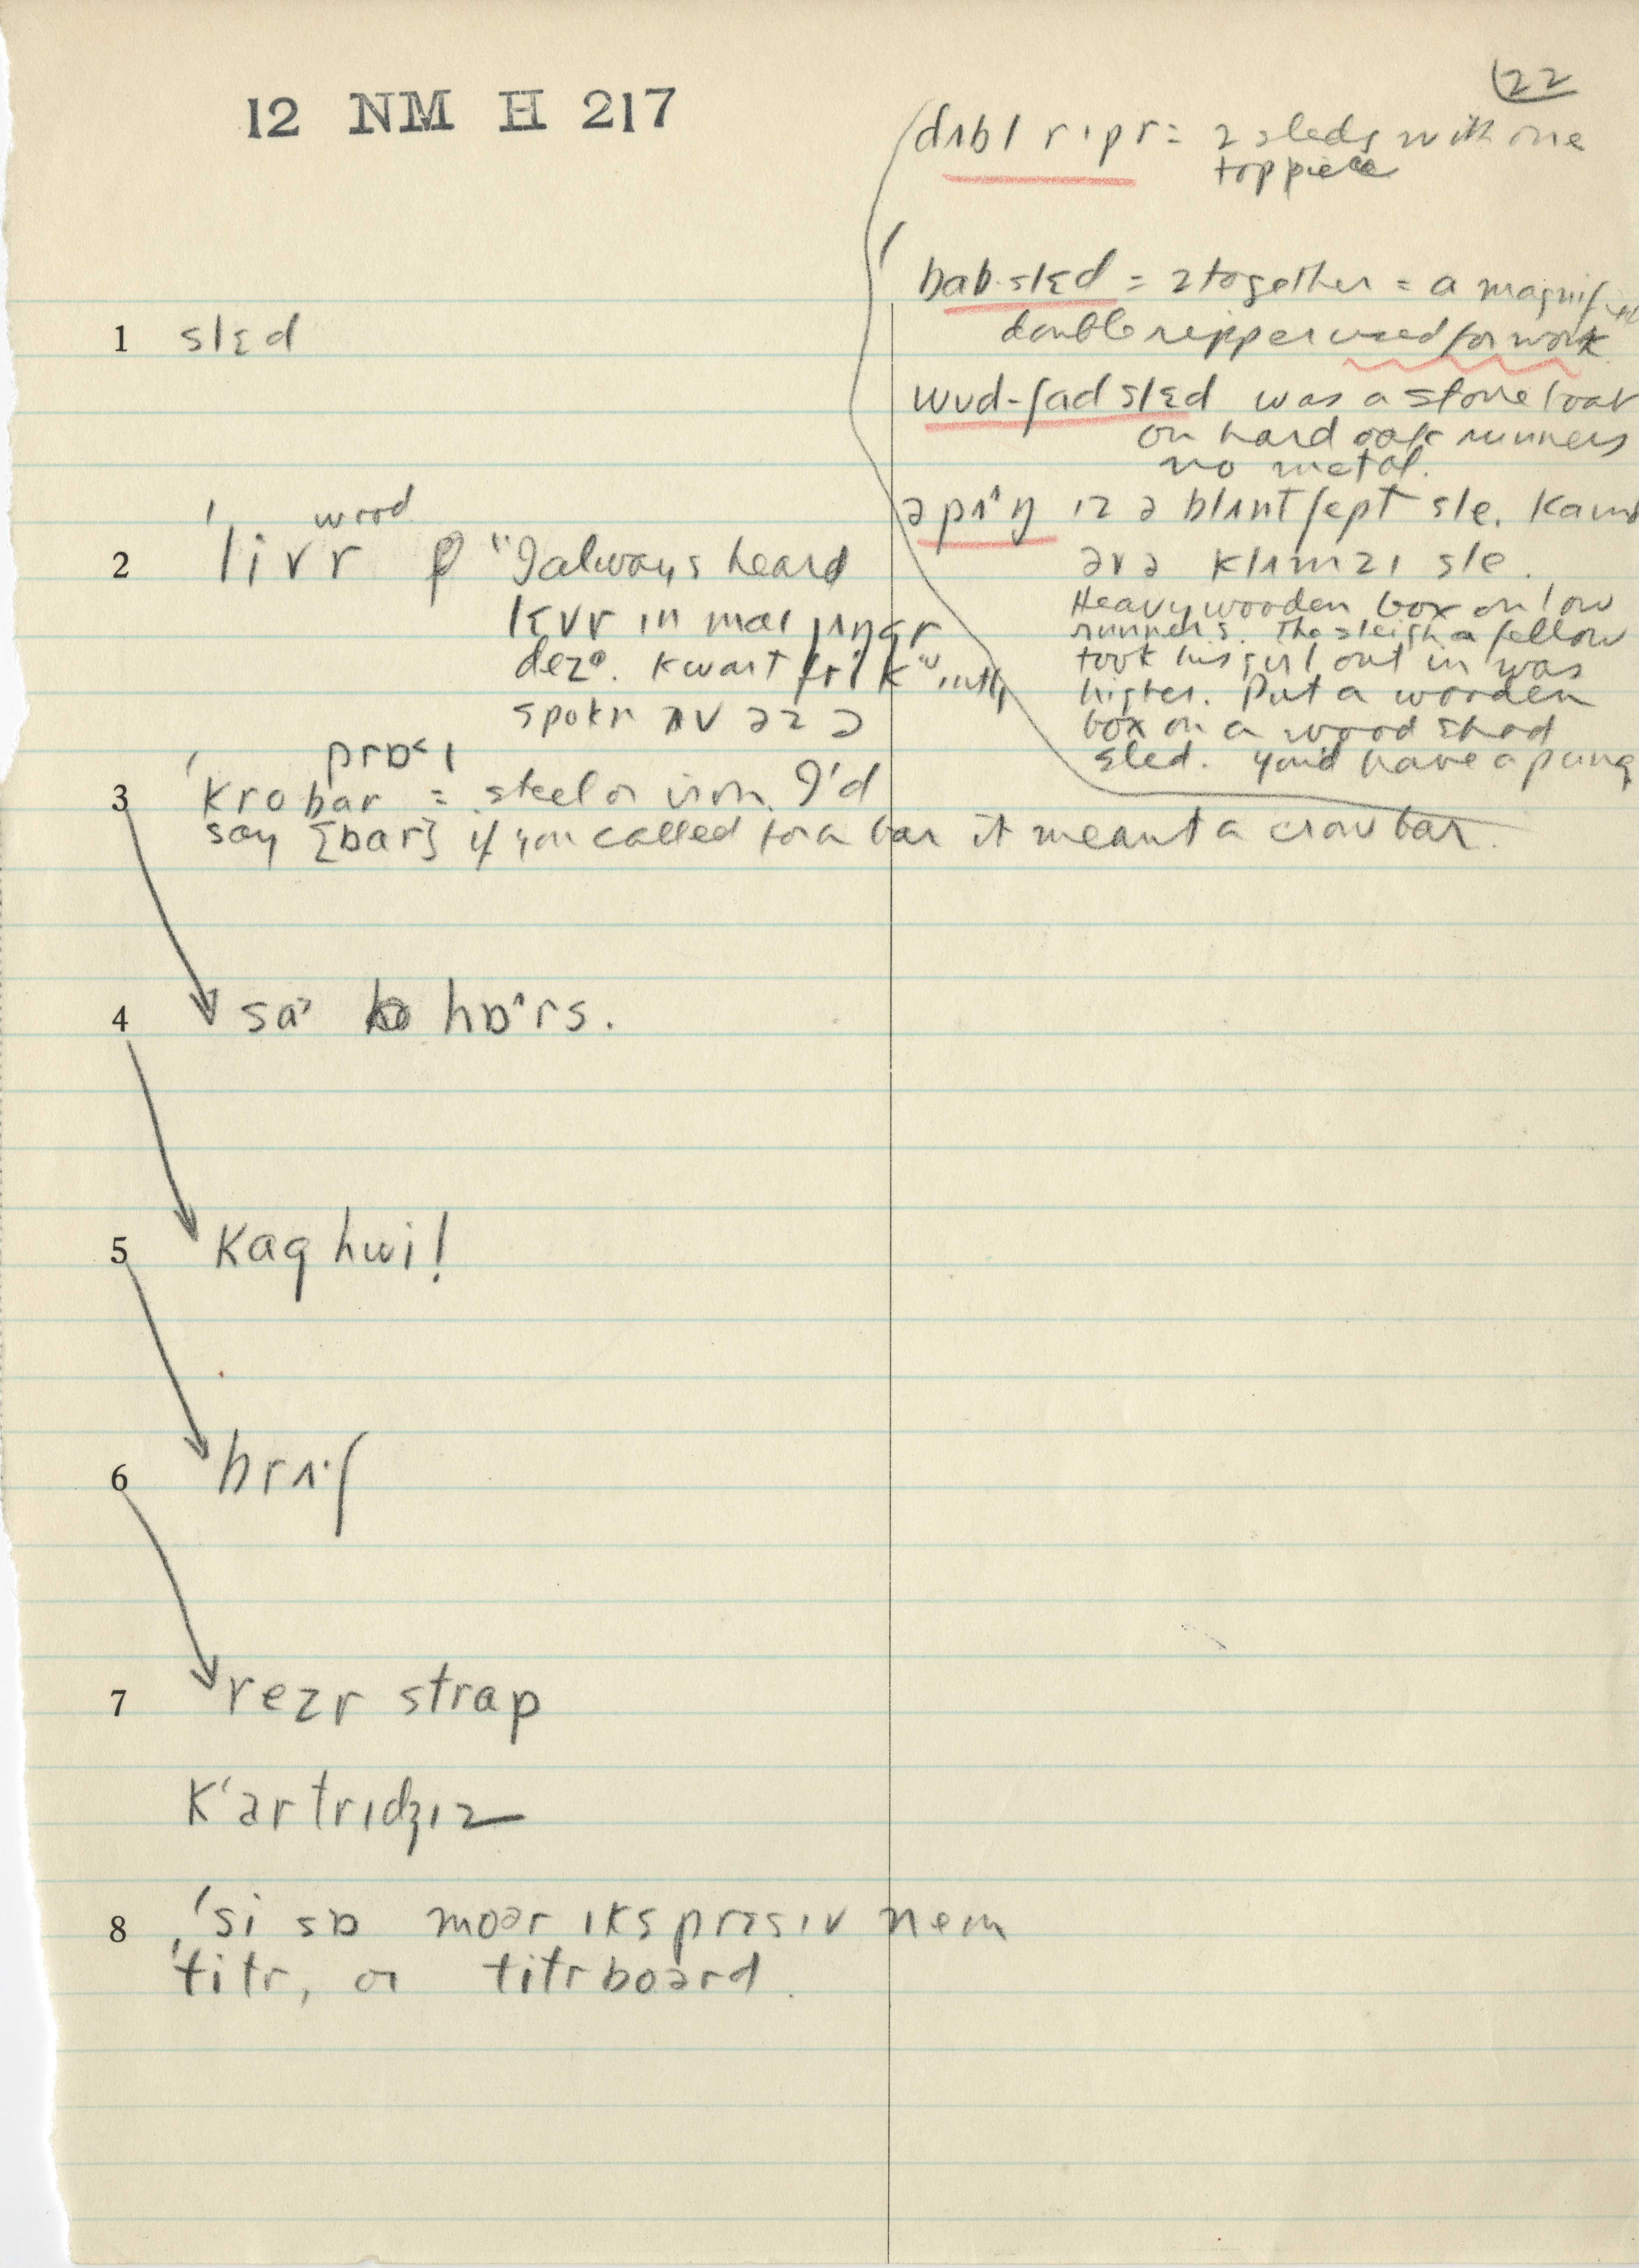 12 NM H 217
22
dʌbl rɪpr = 2 sleds with one
top piece
bab·slɛd = 2 together = a magnified
double ripper used for work
wud-ʃad slɛd was a stone boat
on hard oak runners
no metal.
ə pʌŋ ɪz ə blʌnt ʃept sle. Kaind
əv ə klʌmzi sle.
Heavy wooden box on low
runners. The sleigh a fellow
took his girl out in was
higher. Put a wooden
box on a wood shod
sled. You'd have a pung
1 slɛd
wood
2 ˈlivr "I always heard
lɛvr in mai jʌŋgr
dez
spokn ʌv əz ə
3 ˈkrobar = steel or iron. I'd
say [bar] if you called for a bar it meant a crow bar.
4 hɒˆrs.
5 Kag hwi!
6 brʌ·ʃ
7 rezr strap
kˈartrɪdʒɪz
8 ˈsi sɒ moər ɪksprɛsɪv nem
ˈtitr, or titrboərd.